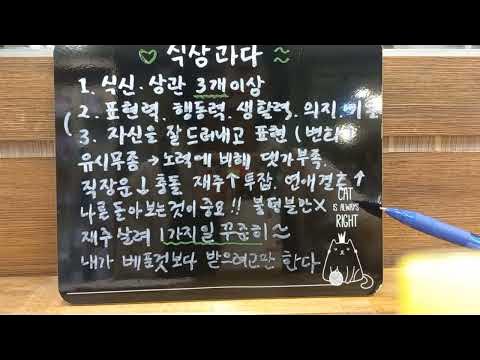 식상과다
1. 식신. 상관 3개이상
2. 표현력. 행동력. 생활력. 의지
3. 자신을 잘 드러내고 표현 (변화
유시무종 → 노력에 비해 댓가부족
직장운↓ 충돌 재주↑ 투잡. 연애결혼↑
나를 돌아보는것이 중요!! 불평불만X
재주 살려 1가지일 꾸준히~
내가 베푼것보다 받으려고만 한다
CAT
IS ALWAYS
RIGHT